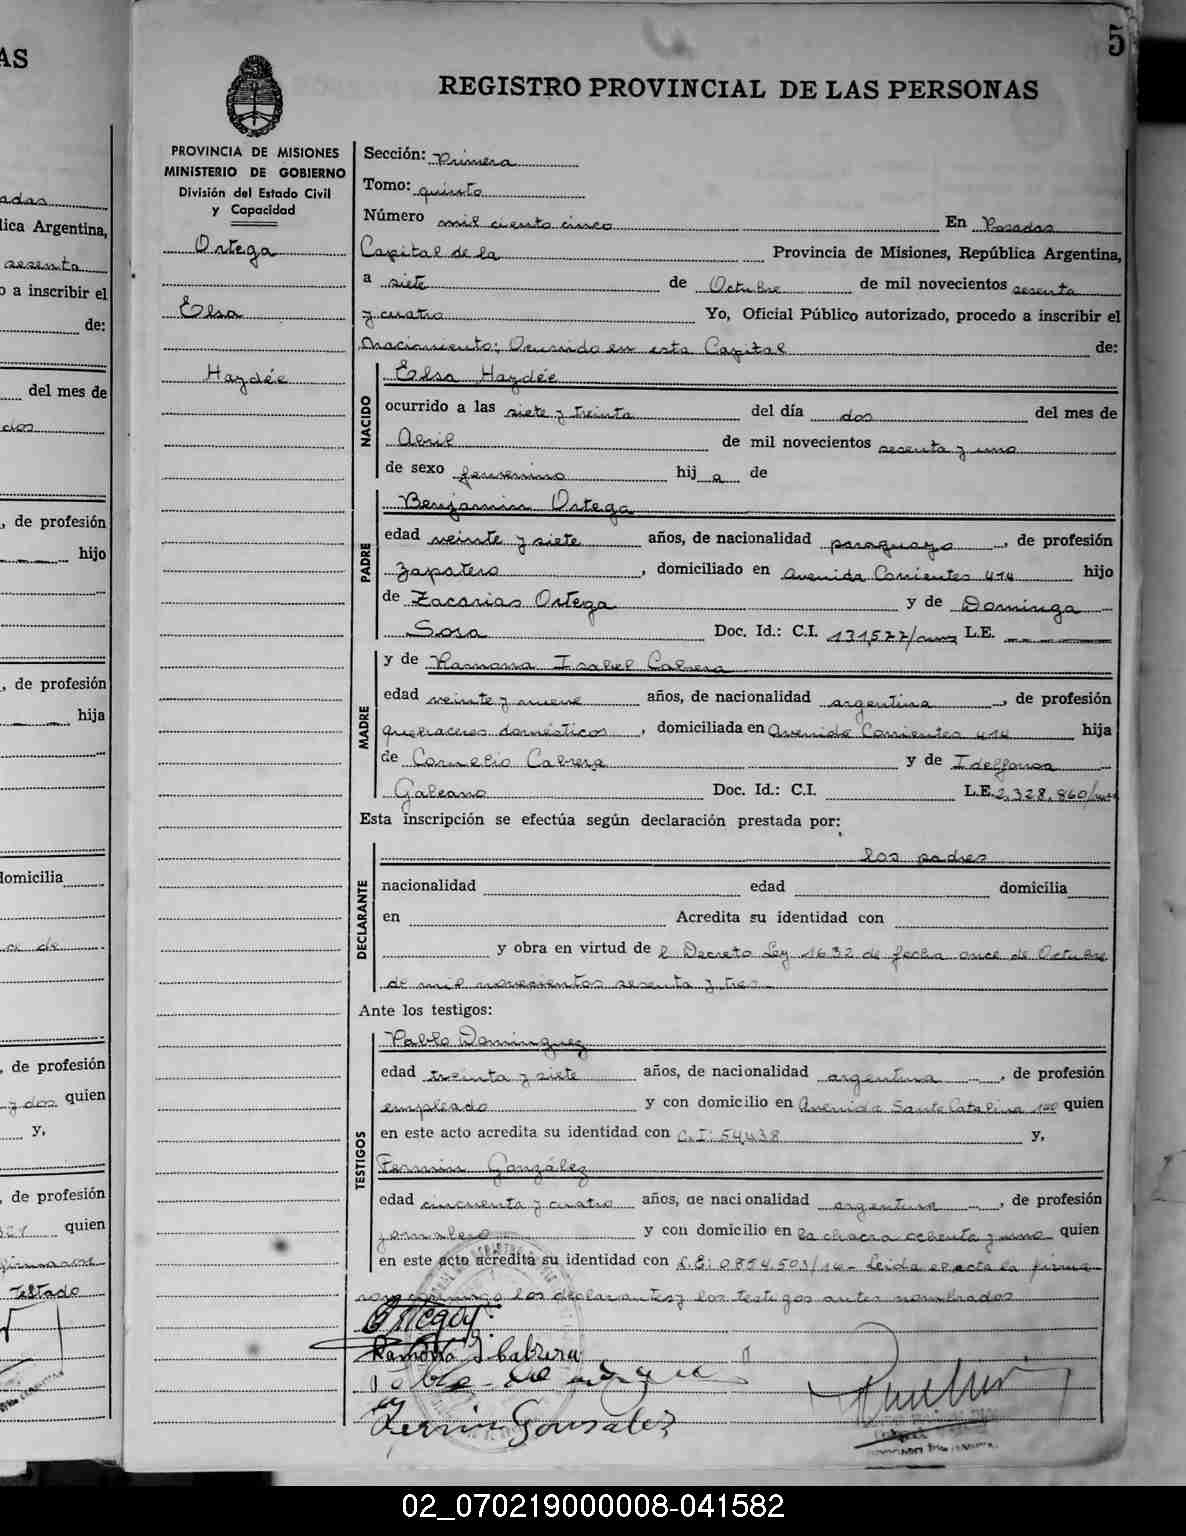 AS
adas
lica Argentina,
sesenta
o a inscribir el
de:
del mes de
dos
, de profesión
hijo
, de profesión
hija
domicilia
re de
, de profesión
y dos quien
y,
, de profesión
quien
firmaron
Testado
5
REGISTRO PROVINCIAL DE LAS PERSONAS
PROVINCIA DE MISIONES
MINISTERIO DE GOBIERNO
División del Estado Civil
y Capacidad
Ortega
Elsa
Haydée
Sección: Primera
Tomo: quinto
Número mil ciento cinco En Posadas
Capital de la Provincia de Misiones, República Argentina,
a siete de Octubre de mil novecientos sesenta
y cuatro Yo, Oficial Público autorizado, procedo a inscribir el
Nacimiento; Ocurrido en esta Capital de:
NACIDO
Elsa Haydée
ocurrido a las siete y treinta del día dos del mes de
Abril de mil novecientos sesenta y uno
de sexo femenino hij a de
PADRE
Benjamin Ortega
edad veinte y siete años, de nacionalidad paraguayo, de profesión
Zapatero, domiciliado en Avenida Corrientes 414 hijo
de Zacarias Ortega y de Dominga
Sosa Doc. Id.: C.I. 131,577/ L.E.
MADRE
y de Ramona Isabel Cabrera
edad veinte y nueve años, de nacionalidad argentina, de profesión
quehaceres domésticos, domiciliada en Avenida Corrientes 414 hija
de Cornelio Cabrera y de Idelfonsa
Galeano Doc. Id.: C.I. L.E. 2,328,860/
Esta inscripción se efectúa según declaración prestada por:
DECLARANTE
los padres
nacionalidad edad domicilia
en Acredita su identidad con
y obra en virtud de l Decreto Ley 1632 de fecha once de Octubre
de mil novecientos sesenta y tres
Ante los testigos:
TESTIGOS
Pablo Dominguez
edad treinta y siete años, de nacionalidad argentina, de profesión
empleado y con domicilio en Avenida Santa Catalina 100 quien
en este acto acredita su identidad con C.I: 54,438 y,
Fermin González
edad cincuenta y cuatro años, de nacionalidad argentina, de profesión
jornalero y con domicilio en la chacra ochenta y uno quien
en este acto acredita su identidad con L.E: 0854,503/16- Leida el acta la firma
ron conmigo los declarantes y los testigos antes nombrados
BOrtega
Ramona I. Cabrera
Fermin Gonsalez
02_070219000008-041582